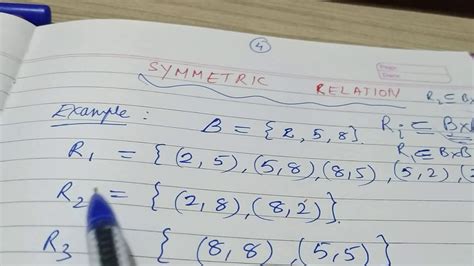 4
SYMMETRIC RELATION
R₂ ⊆ B×
Example : B = {2, 5, 8}. Rᵢ ⊆ B×B
R₁ ⊆ B×B
R₁ = { (2, 5), (5, 8), (8, 5), (5, 2), (2
R₂ = { (2, 8), (8, 2) }.
R₃ { (8, 8), (5, 5)